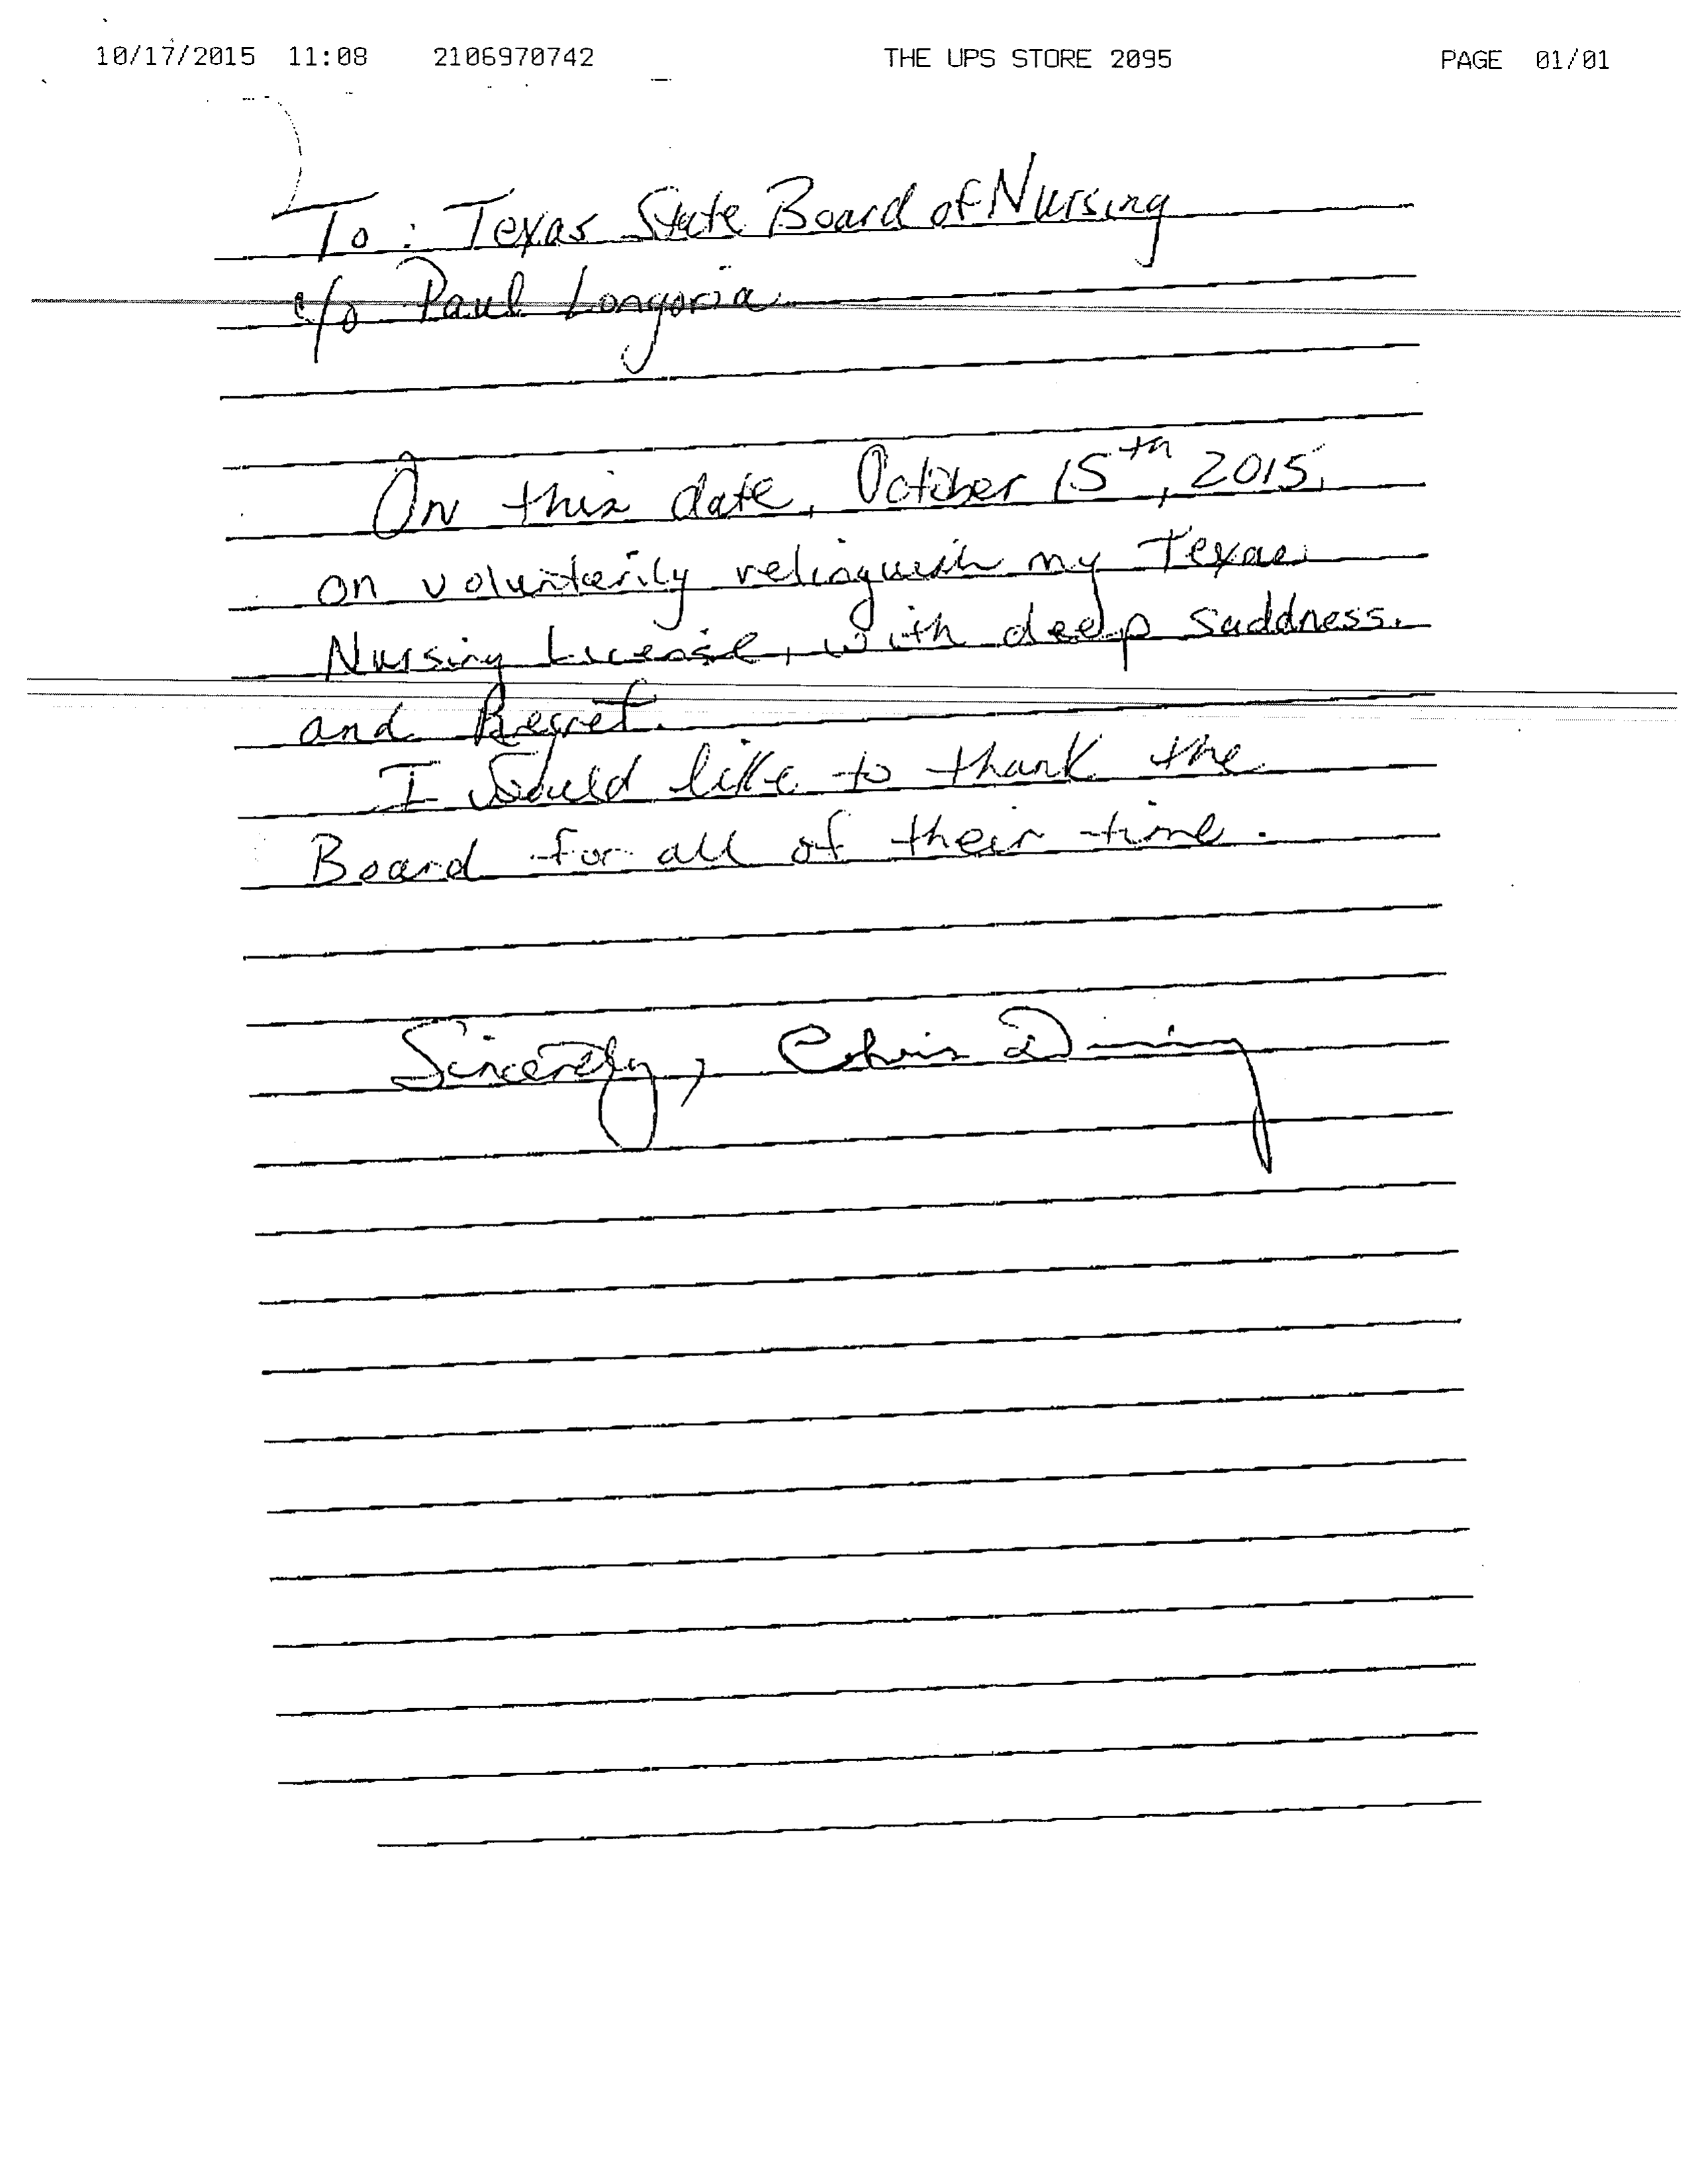 10/17/2015 11:08 2106970742 THE UPS STORE 2095 PAGE 01/01
To: Texas State Board of Nursing
c/o Paul Longoria
On this date, October 15th, 2015,
on voluntarily relinquish my Texas
Nursing License, with deep saddness.
and Regret.
I would like to thank the
Board for all of their time.
Sincerely, Chris